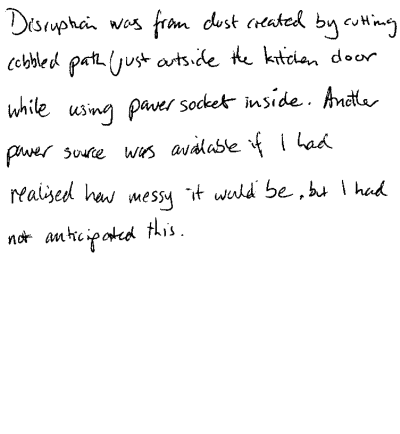 Disruption was from dust created by cutting
cobbled path (just outside the kitchen door
while using power socket inside. Another
power source was available if I had
realised how messy it would be, but I had
not anticipated this.